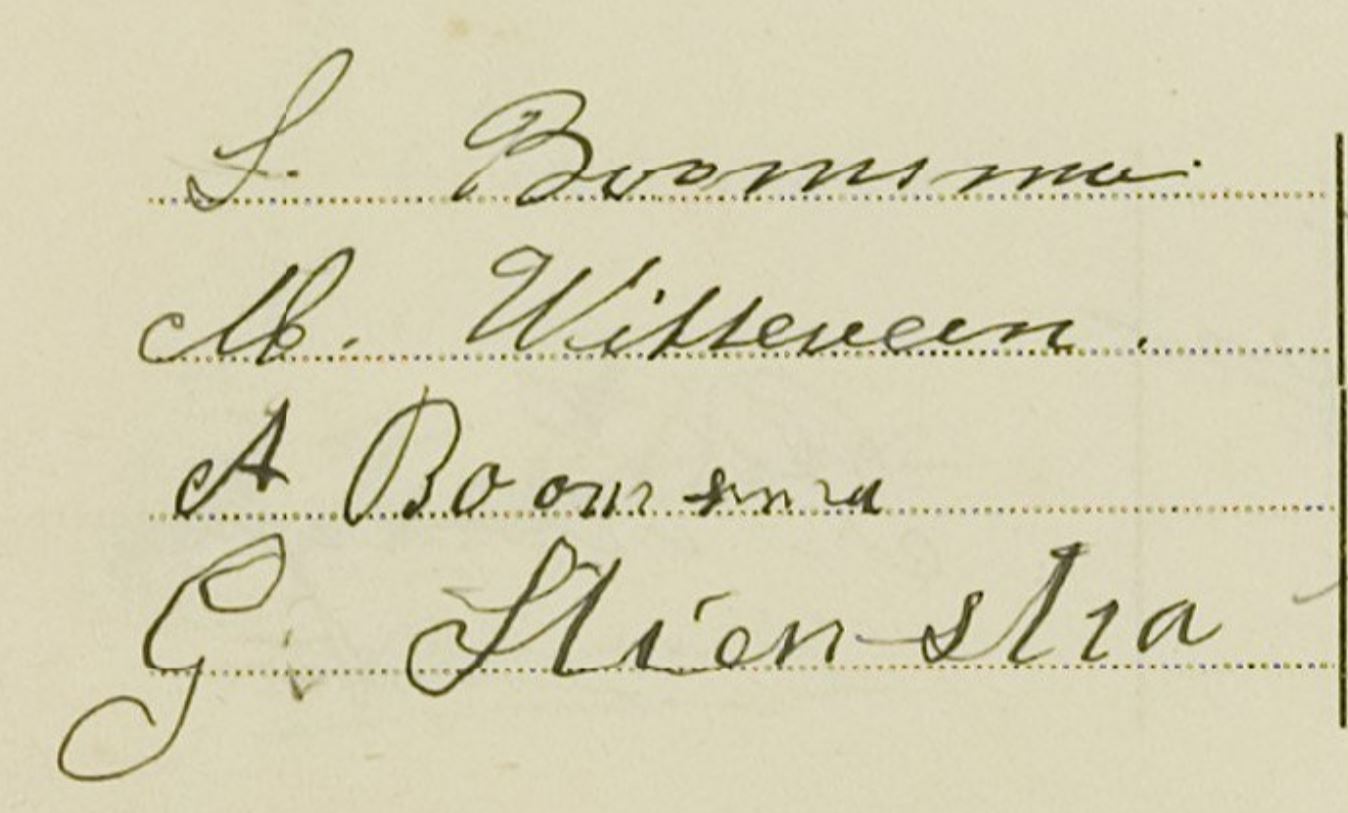 S. Boomsma.
M. Witteveen.
A Boomsma
G. Stienstra